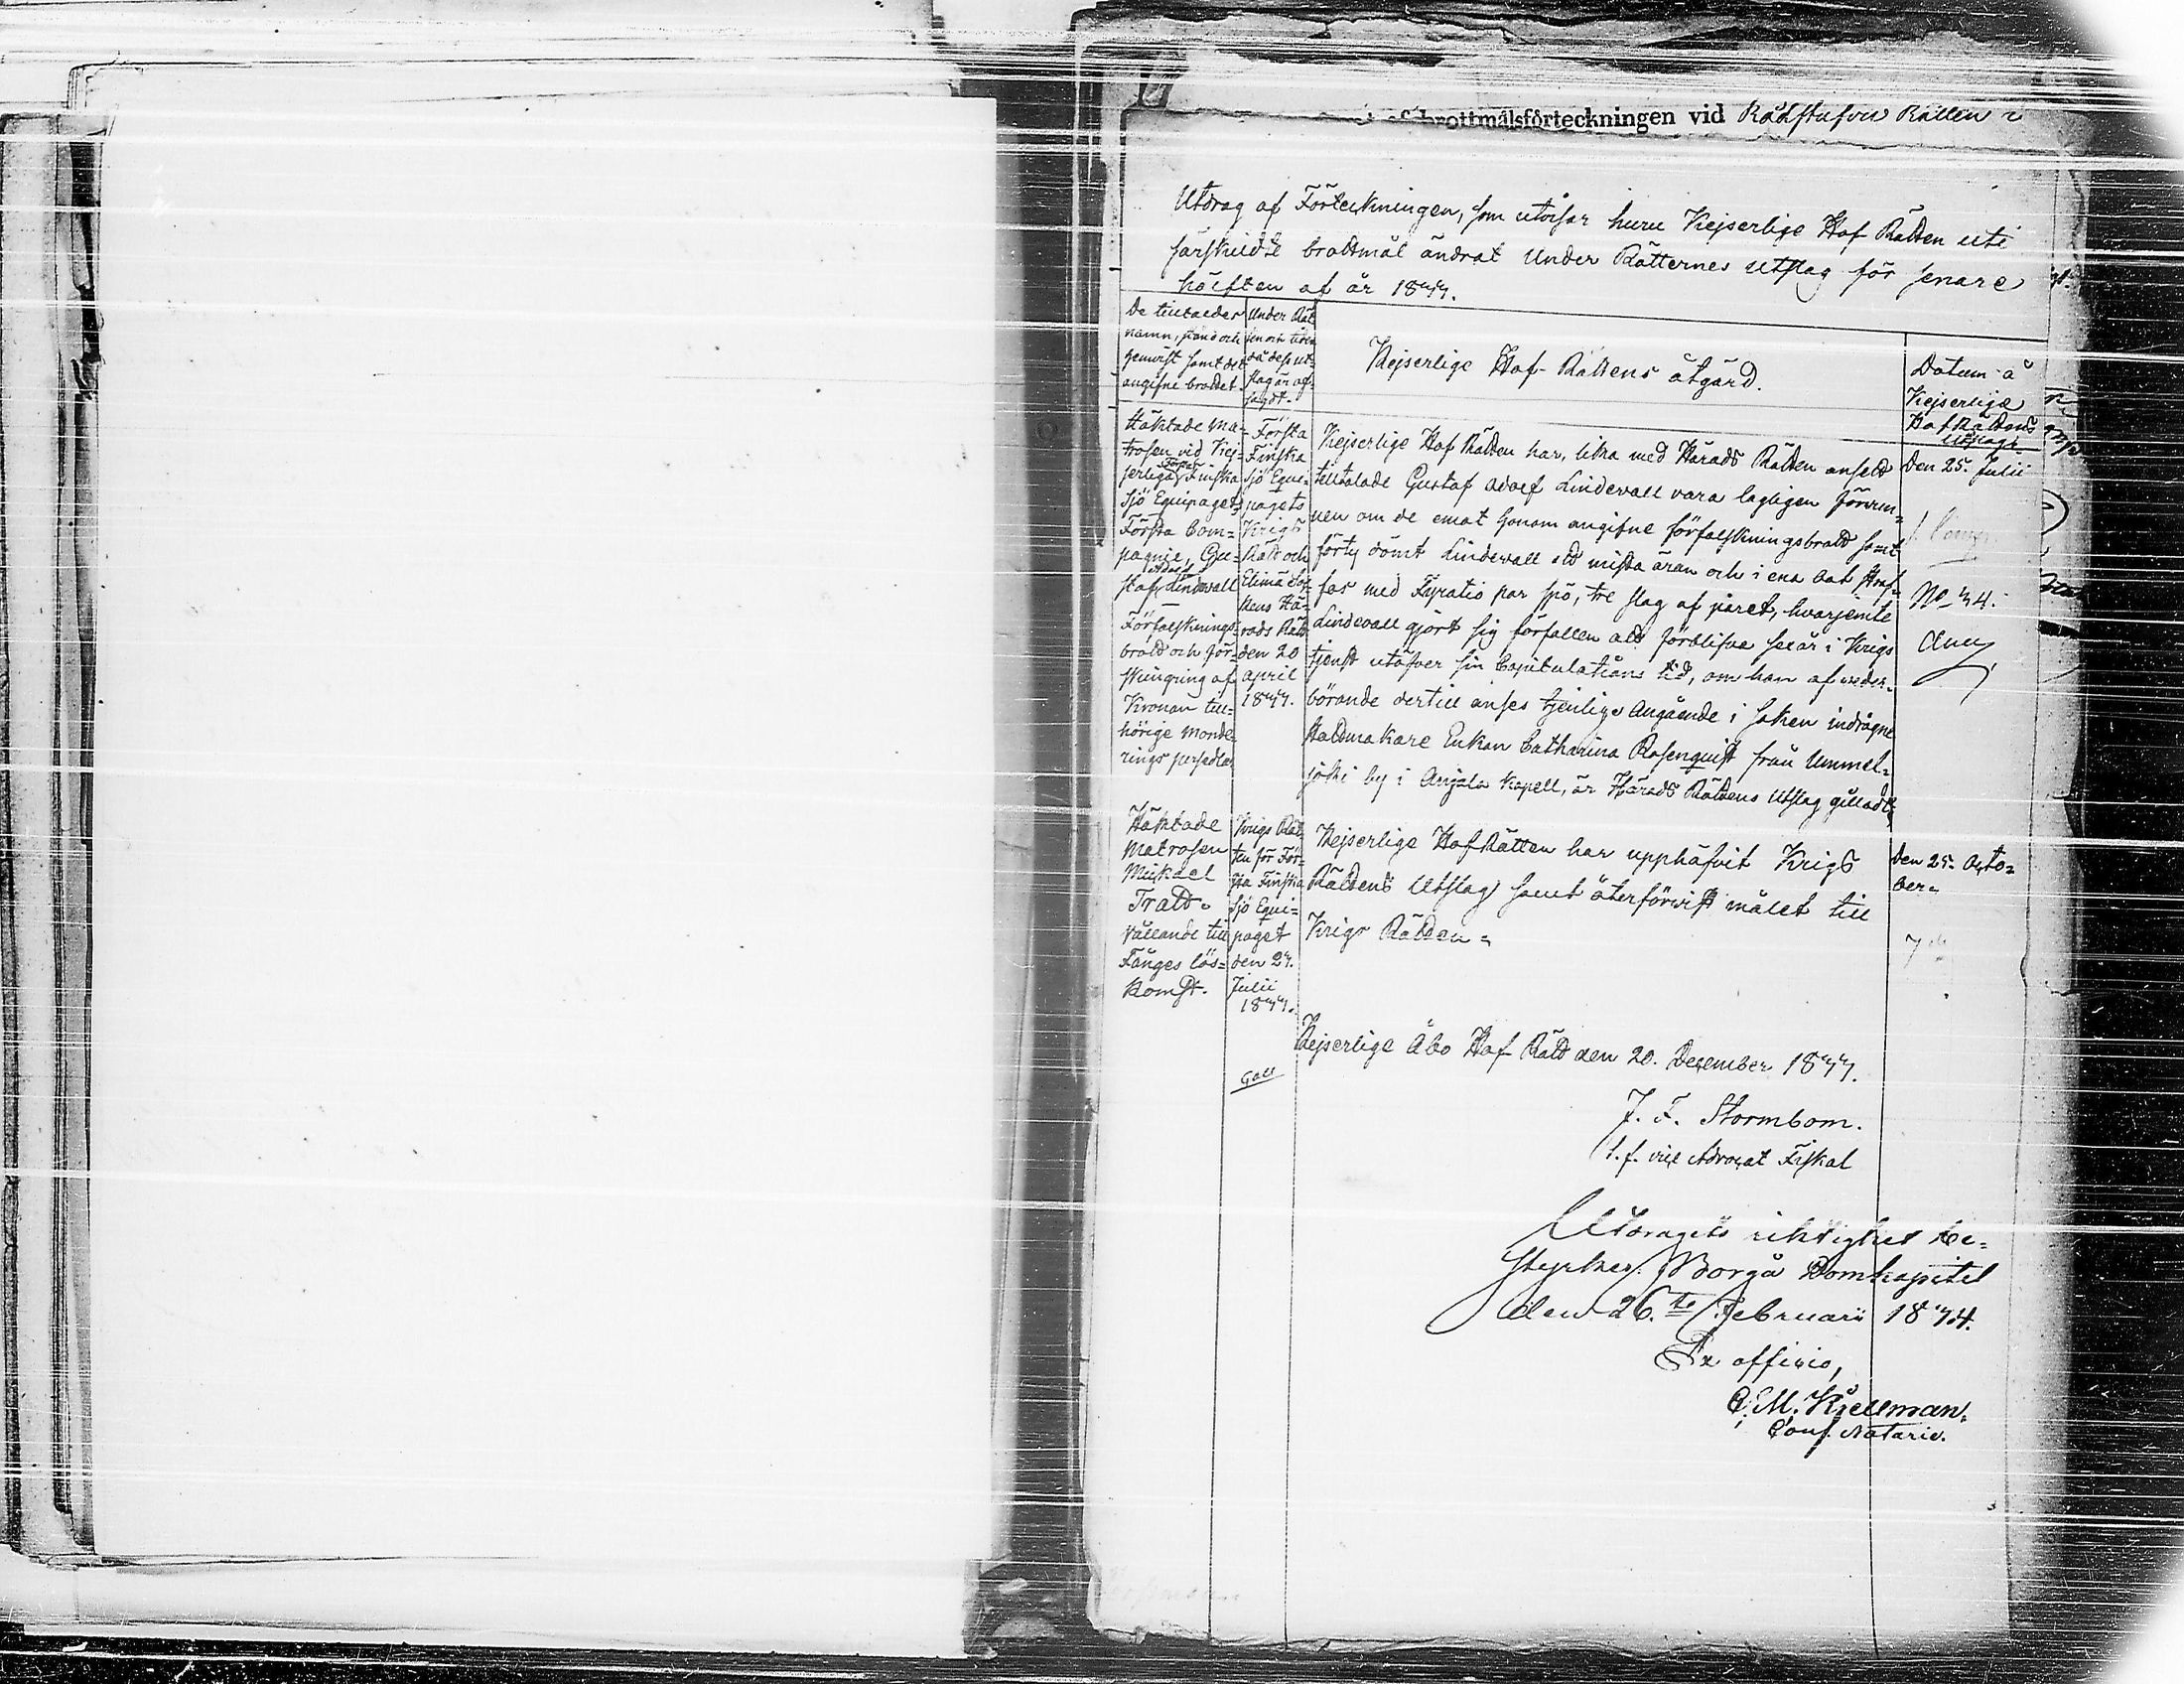 brottmålsförteckningen vid Rådstufvu Rätten i
Utdrag af Förteckningen, som utvisar huru Kejserlige Hof Rätten uti
särskildte brottmål ändrat Under Rätternes utslag för senare
hälften af år 1877.
De tilltalades
namn, stånd och
hemvist samt det
angifne brottet.
Under Rät
ten och tiden
då dess ut-
slag är af-
sagdt.
Kejserlige Hof-Rättens åtgärd.
Datum å
Kejserlige
Hof Rättens
Utslag.
Häktade Ma-
trosen vid Kej-
serliga Första Finska
Sjö Equipagets
Första Com-
pagnie, Gu-
staf Adolf Lindewall
Förfalsknings-
brott och för-
skingring af
Kronan till-
hörige Monde-
rings persedlar
Första
Finska
Sjö Equi-
pagets
Krigs
Rätt och
Elimä Soc-
kens Hä-
rads Rätt
den 20
April
1877.
Kejserlige Hof Rätten har, lika med Härads Rätten ansett
tilltalade Gustaf Adolf Lindewall vara lagligen förvun-
nen om de emot honom angifne förfalskningsbrott samt
förty dömt Lindewall att mista äran och i ena bot straf-
fas med Fyratio par spö, tre slag af paret, hvarjemte
Lindewall gjort sig förfallen att förblifva sex år i Krigs
tjenst utöfver sin Capitulations tid, om han af veder-
börande dertill anses tjenlig. Angående i saken indragne
Hattmakare Enkan Catharina Rosenquist från Ummel-
joki by i Anjala Kapell, är Härads Rättens Utslag gilladt.
Den 25. Julii
No 74.
Häktade
Matrosen
Mickael
Tratt.
Vållande till
Fånges lös-
komst.
Krigs Rät-
ten för För-
sta Finska
Sjö Equi-
paget
den 27.
Julii
1877.
Kejserlige Hof Rätten har upphäfvit Krigs
Rättens Utslag samt återförvist målet till
Krigs Rätten.
Den 25. Octo-
ber.
Kejserlige Åbo Hof Rätt den 20. December 1877.
J. F. Stormbom.
t.f. vice Advocat Fiskal
Utdragets riktighet be-
styrker. Borgå Domkapitel
den 26.te Februari 1874.
Ex officio,
C. M. Kjellman.
Cons. Notarie.